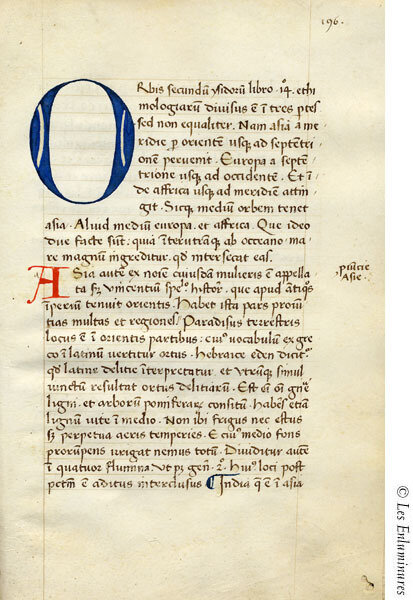 196.
Orbis secundũ ysidorũ libro · 14. ethi
mologiarũ divisus ẽ ĩ tres ptes
sed non equaliter. Nam asia a me
ridie p orientẽ usqʒ ad septẽtri
onẽ pervenit. Europa a septẽ
trione usqʒ ad occidentẽ. Et ĩ
de affrica usqʒ ad meridiẽ attin
git. Sicqʒ mediũ orbem tenet
asia. Aliud mediũ europa. et affrica. Que ideo
due facte sũt: quia ĩterutrãqʒ ab oceano ma
re magnũ ingreditur. qđ intersecat eas.
Asia autẽ ex noĩe cuiusdã mulieris ẽ appella
ta sʒ vincentiũ spe⁹ histor. que apud ãtiqʒ
ĩperiũ tenuit orientis. Habet ista pars prouĩ
tias multas et regiones. Paradisus terrestris
locus ẽ ĩ orientis partibus: cui⁹ vocabulũ ex gre
co ĩ latinũ vertitur ortus. Hebraice eden dicit᷑.
qđ latine delitie ĩterpretatur. et utrũqʒ simul
iunctũ resultat ortus delitiarũ. Est eĩ oĩ gñe
ligni. et arborũ pomiferarʒ consitũ. Habẽs etiã
lignũ vite ĩ medio. Non ibi frigus nec estus
sʒ perpetua aeris temperies. E cui⁹ medio fons
prorũpens irrigat nemus totũ. Dividitur autẽ
ĩ quatuor flumina ut pʒ gen. 2. Hui⁹ loci post
petm̃ ẽ aditus interclusus India q̃ ẽ ĩ asia
Asie.
© Les Enluminures